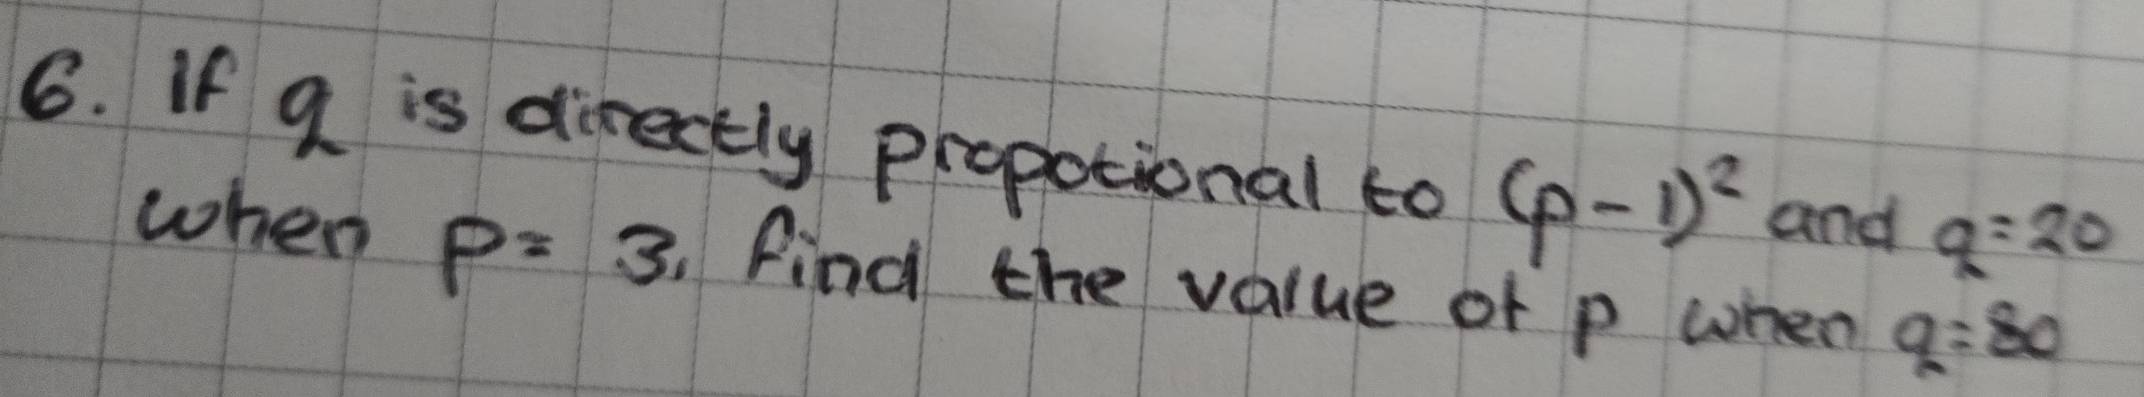 6. If q is directly propotional to (p-1)² and q=20
when p= 3, find the value of p when q=80